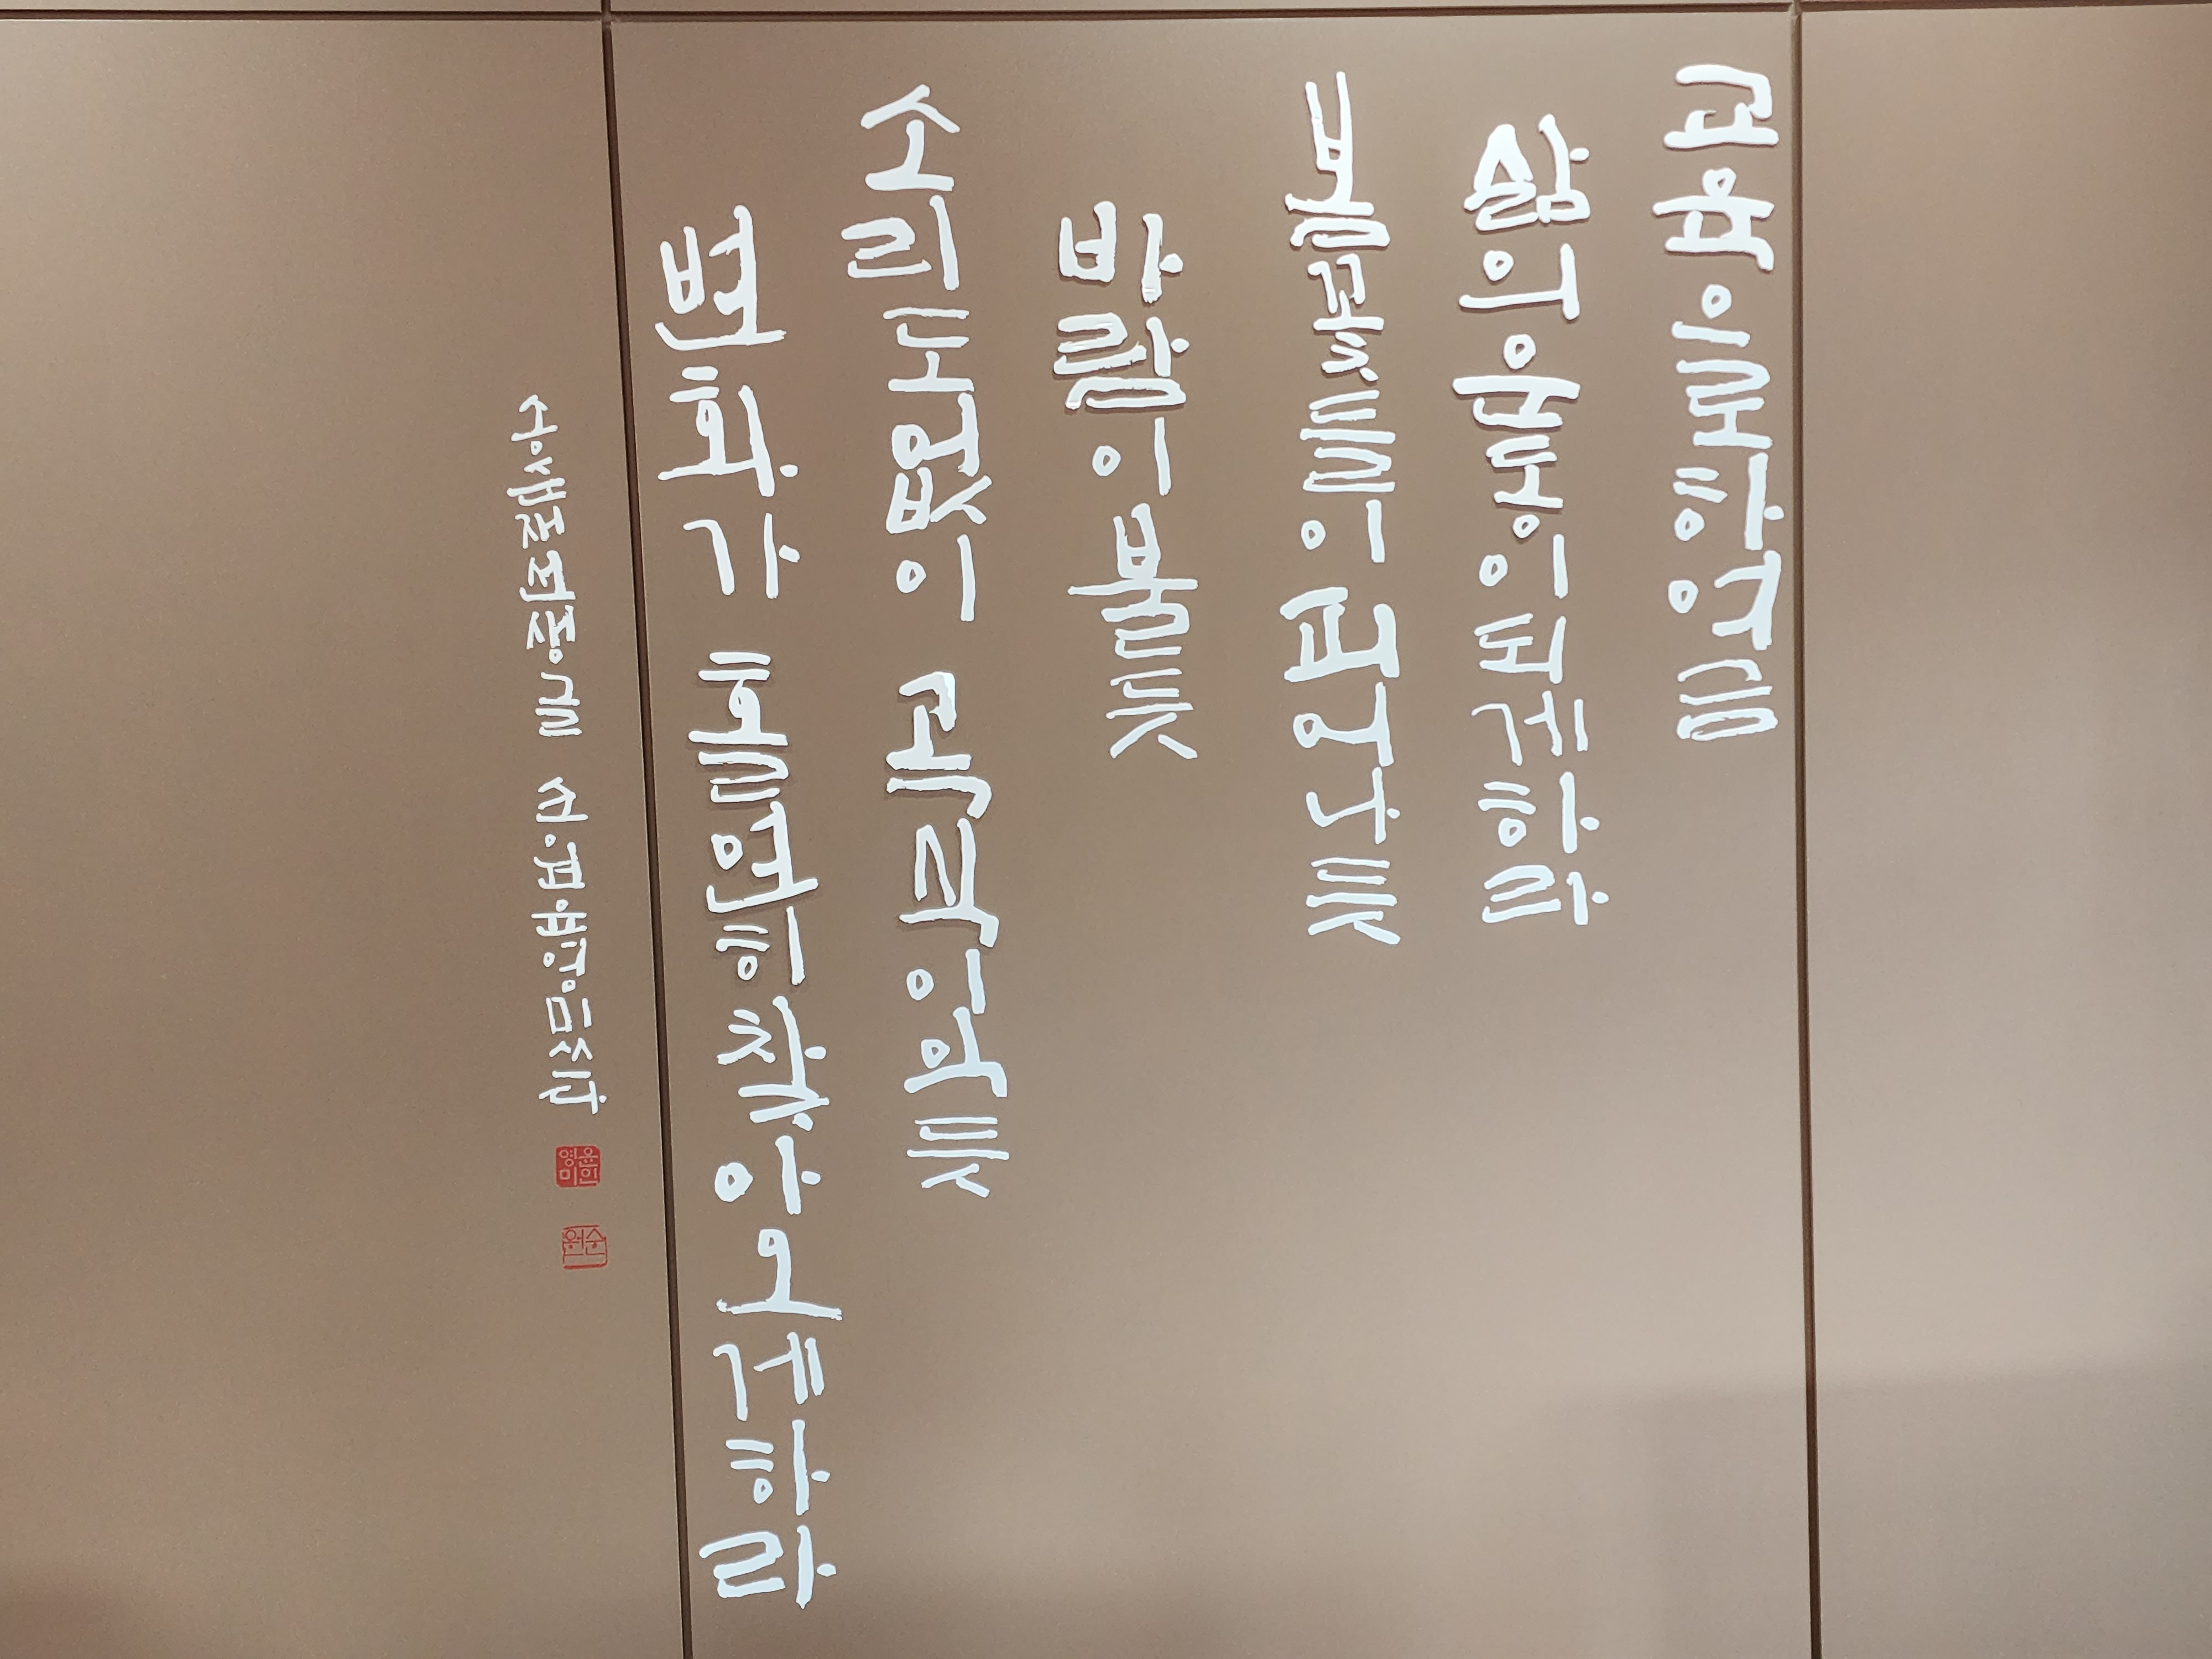 교육으로하여금
삶의운동이되게하라
봄꽃들이피어나듯
바람이불듯
소리도없이 곡식이익듯
변화가 홀연히찾아오게하라
글 순원윤영미쓰다
윤인영미
순원